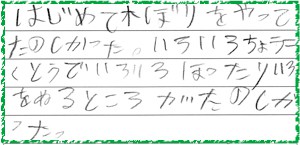 はじめて木ぼりをやって
たのしかった。いろいろちょうこ
くとうでいろいろほったりいろ
をぬるところがたのしか
った。